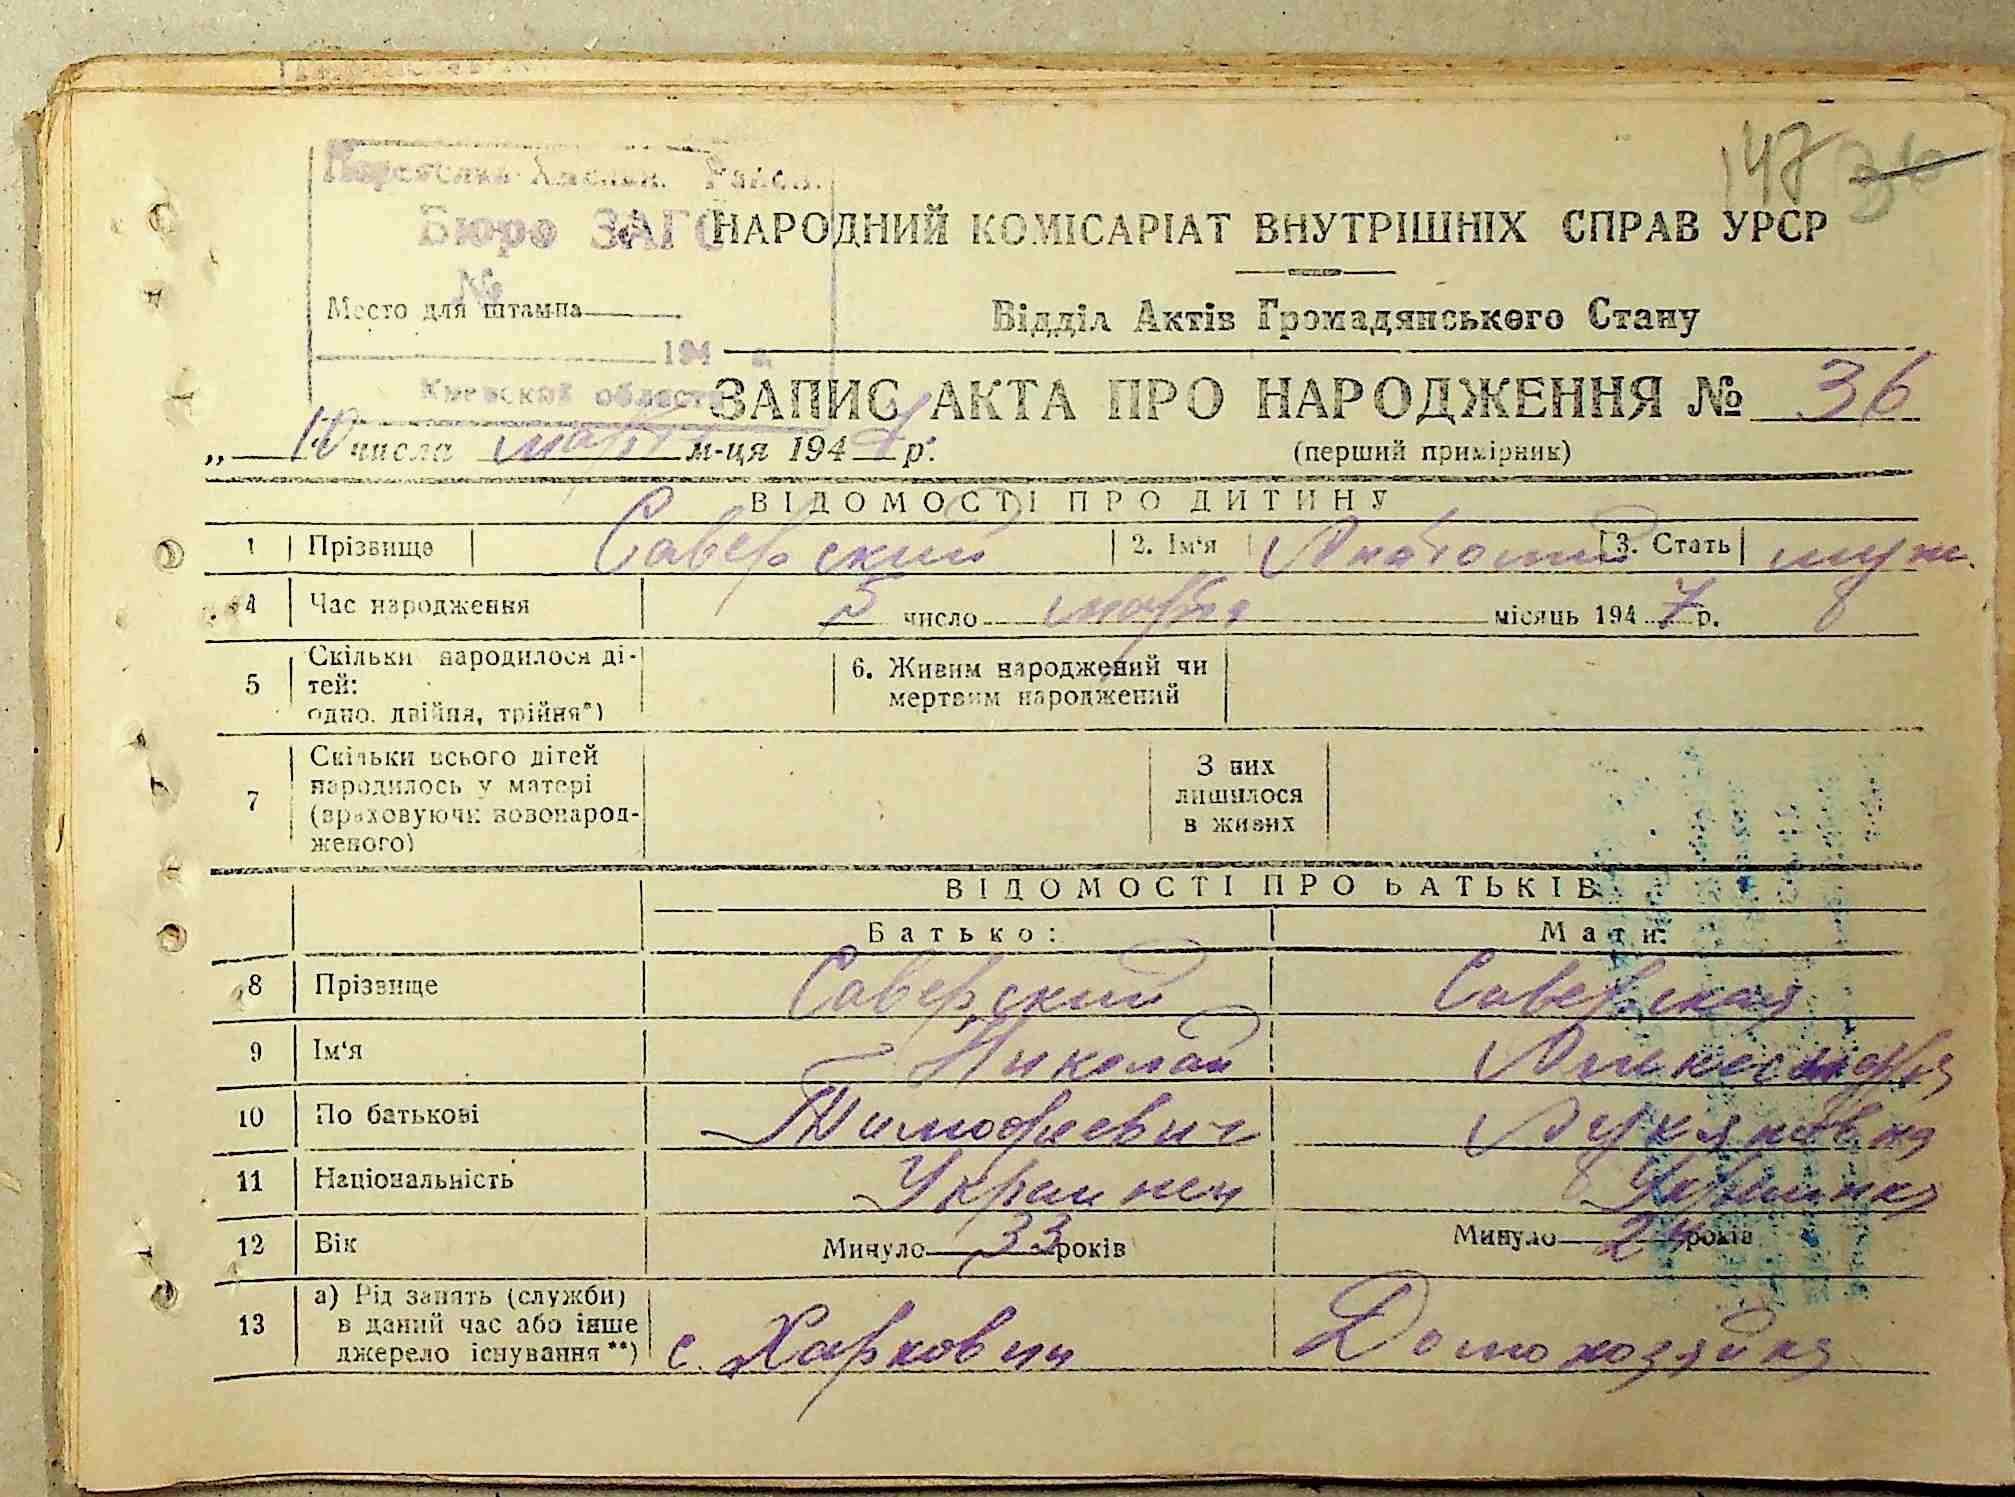 147 36
Бюро ЗАГС
НАРОДНИЙ КОМІСАРІАТ ВНУТРІШНІХ СПРАВ УРСР
№
Место для штампа
Відділ Актів Громадянського Стану
194 г.
Киевской области
ЗАПИС АКТА ПРО НАРОДЖЕННЯ № 36
„ 10 числа марта м-ця 1947 р.
(перший примірник)
ВІДОМОСТІ ПРО ДИТИНУ
1 Прізвище Саверский 2. Ім'я Анатолий 3. Стать муж.
4 Час народження 5 число марта місяць 1947 р.
5 Скільки народилося ді-
тей:
одно, двійня, трійня*)
6. Живим народжений чи
мертвим народжений
7 Скільки всього дітей
народилось у матері
(враховуючи новонарод-
женого)
З них
лишилося
в живих
ВІДОМОСТІ ПРО БАТЬКІВ
Батько: Мати:
8 Прізвище Саверский Саверская
9 Ім'я Николай Александра
10 По батькові Тимофеевич Лукяновна
11 Національність Украинец Украинка
12 Вік Минуло 33 років Минуло 24 років
13 а) Рід занять (служби)
в даний час або інше
джерело існування**)
с. Харковци Домохозяйка